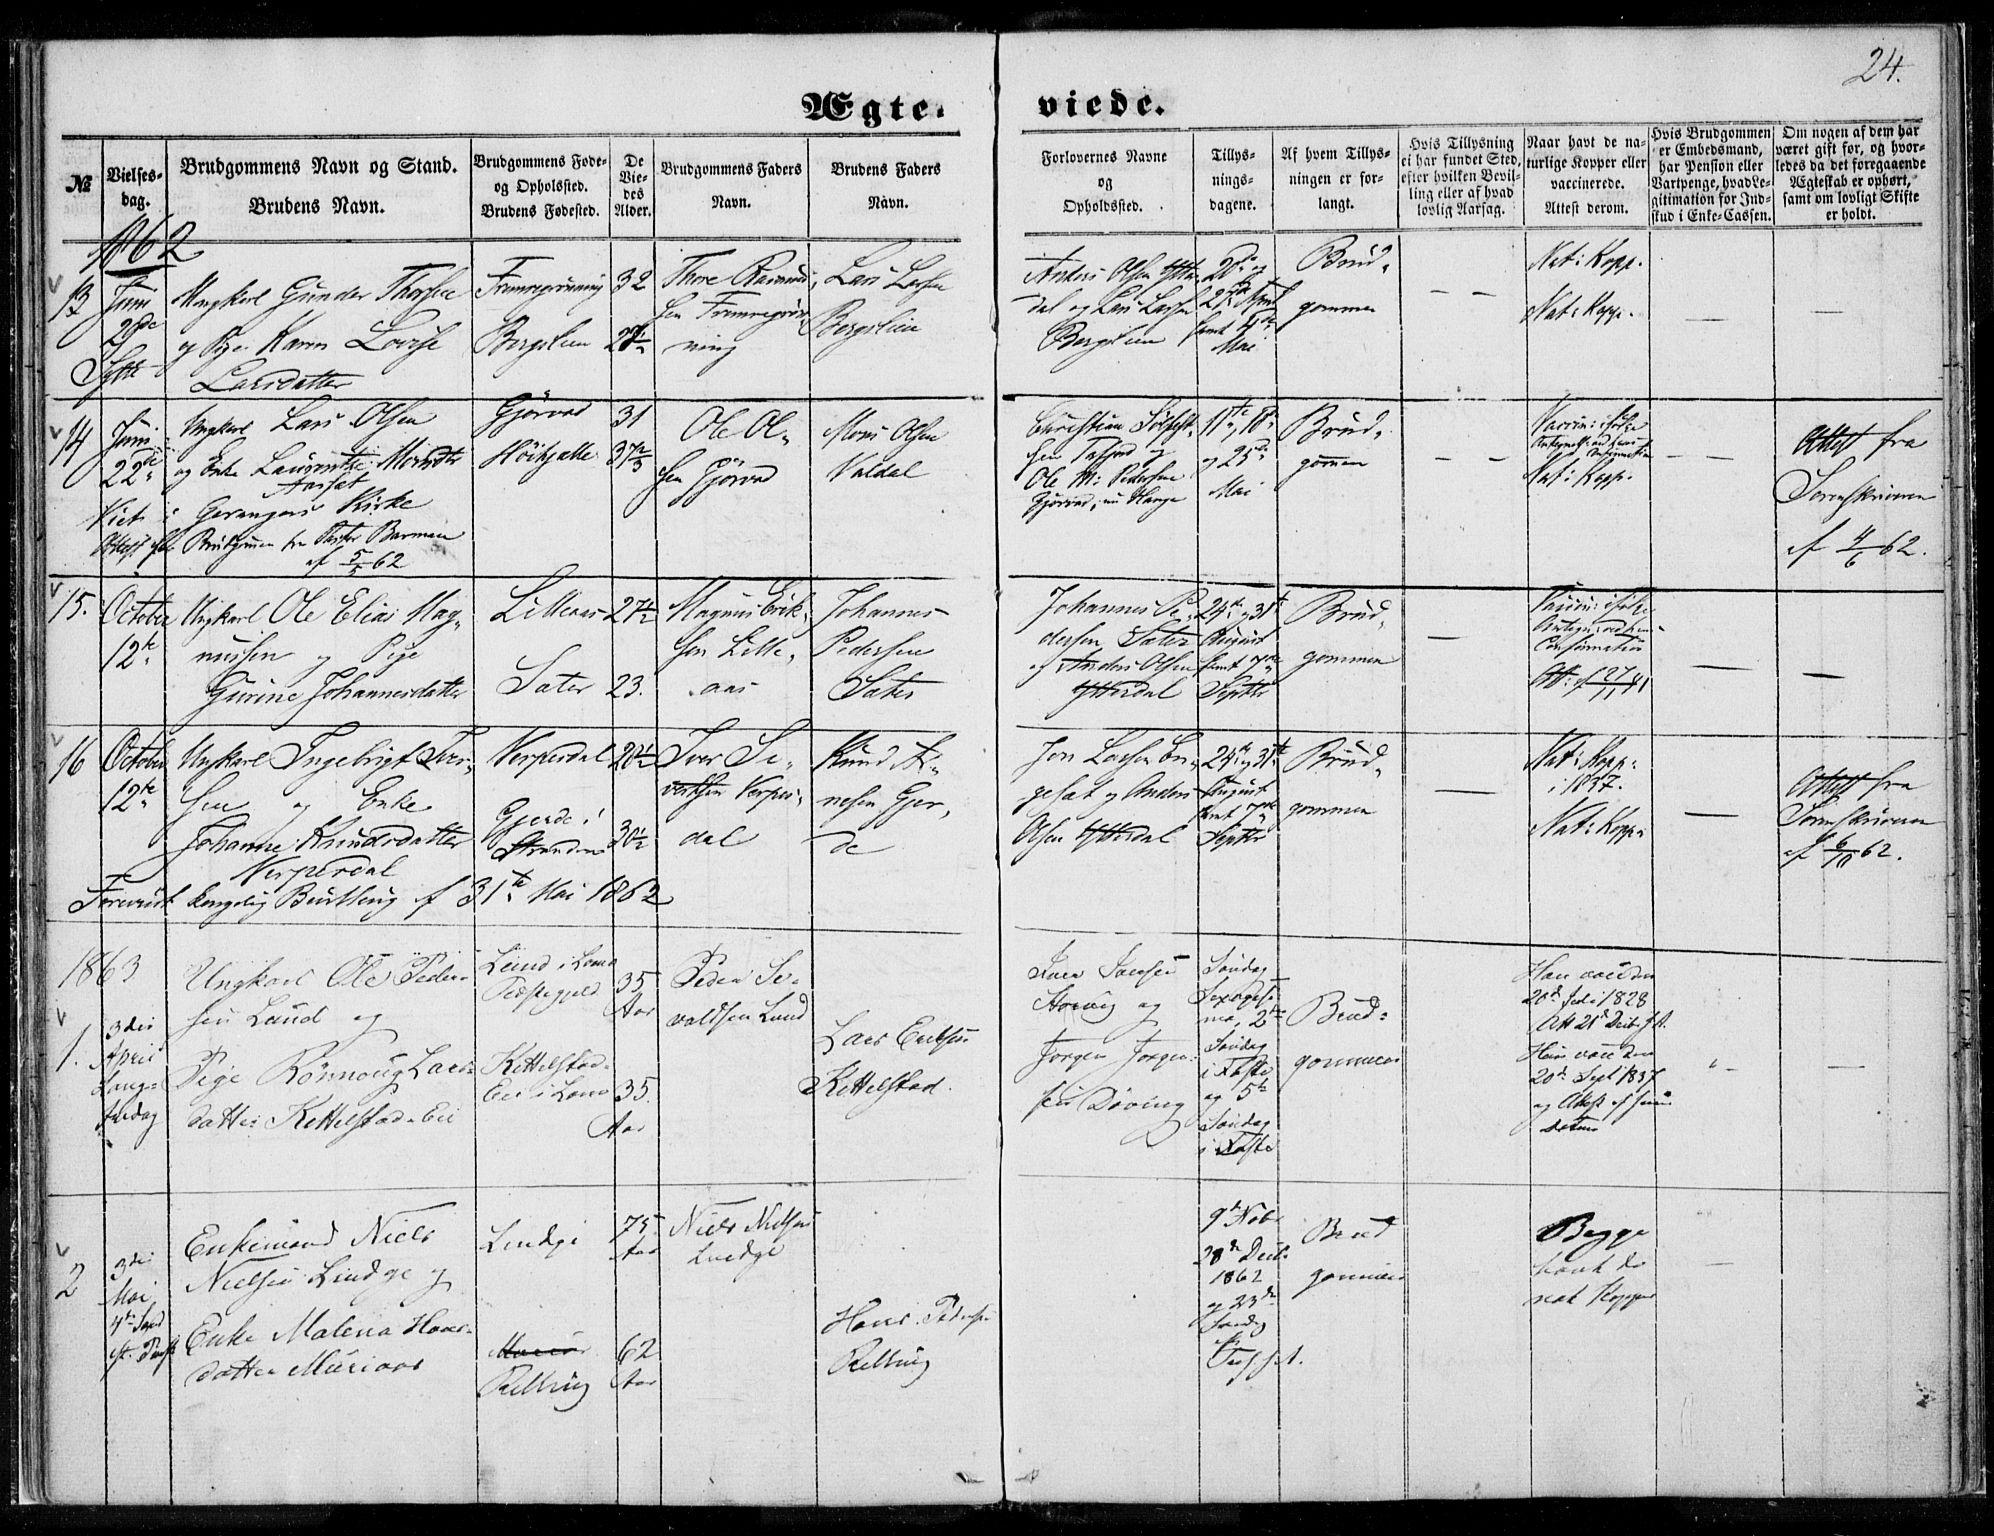 24.
Ægte- viede.
№
Vielses-
dag.
Brudgommens Navn og Stand.
Brudens Navn.
Brudgommens Føde-
og Opholssted.
Brudens Fødested.
De
Vie-
des
Alder.
Brudgommens Faders
Navn.
Brudens Faders
Navn.
Forlovernes Navne
og
Opholdssted.
Tillys-
nings-
dagene.
Af hvem Tillys-
ningen er for-
langt.
Hvis Tillysning
ei har fundet Sted,
efter hvilken Bevil-
ling eller af hvad
lovlig Aarsag.
Naar havt de na-
turlige Kopper eller
vaccinerede.
Attest derom.
Hvis Brudgommen
er Embedsmand,
har Pension eller
Vartpenge, hvad Le-
gitimation for Ind-
skud i Enke-Cassen.
Om nogen af dem har
været gift før, og hvor-
ledes da det foregaaende
Ægteskab er ophørt,
samt om lovligt Skifte
er holdt.
1862
13
Juni
29de
Sylte
Ungkarl Gunder Thorsen
og Pige Karen Lovise
Larsdatter
Fremregrøning
Bergslien
32
Thore Rasmus-
sen Fremregrø-
ning
Lars Larsen
Bergslien
Anders Olsen Ytter-
dal og Lars Larsen
Bergslien
20de og
27de April
samt 4de
Mai
Brud-
gommen
— —
Nat: Kopp.
Nat: Kopp.
—
—
14
Juni
22de
Viet i
Ungkarl Lars Olsen
og Enke Laurentze Monsdtr
Aasæt
Gerangers Kirke
Attest for Brudgommen fra Pastor Barman
af 5/5 62
Gjørvad
Høihjalle
31
Ole Ol-
sen Gjørvad
Mons Olsen
Valdal
Christian
sen Tafjord og
Ole M: Pedersen
Gjørvad, nu Hauge
11te, 18de
og 25de
Mai
Brud-
gommen
— —
Vaccin: ifølge
Nat: Kopp.
— —
Attest fra
Sorenskriveren
af 4/6 62.
15.
October
12te
Ungkarl Ole Elias Mag-
nussen og Pige
Gurine Johannesdatter
Lilleaas
Sæter
27½
23.
Magnus Erik-
sen Lille-
aas
Johannes
Pedersen
Sæter
Johannes Pe-
dersen Sæter
og Anders Olsen
Ytterdal
24de og 31te
August
samt 7de
Septbr
Brud-
gommen
—
Vaccin: ifølge
Confirmation
—
—
16
October
12te
Ungkarl Ingebrigt Iver-
sen og Enke
Johanne Knudsdatter
Verperdal
Foreviist kongelig Bevilling af 31te Mai 1862
Verperdal
Gjerde i
Stranden
20½
30½
Iver Si-
vertsen Verper-
dal
Knud A-
nesen Gjer-
de
Jon Larsen En-
gesæt og Anders
Olsen Ytterdal
24de og 31te
August
samt 7de
Septbr
Brud-
gommen
—
Nat: Kopp:
i 1837.
Nat: Kopp:
—
Attest fra
Sorenskriveren
af 6/10 62.
1863
1.
3die
April
Lang-
fredag
Ungkarl Ole Peder-
sen Lund og
Pige Rønnoug Lars-
datter Kettelstad-Eie
Lund i Loms
Præstegjeld
Kettelstad-
Eie i Lom
35
Aar
35.
Aar
Peder Si-
valdsen Lund
Lars Eriksen
Kettelstad.
Hoevig og
Jørgen Jørgen-
sen Døving
Søndag
Sexagesi-
ma, 2den
Søndag
i Faste
og 5te
Søndag
i Faste
Brud-
gommen
Han vacc. den
20de Juli 1828
Hun vacc. den
20de Sept 1837
og Attest af samme
Datum
—
—
2
3die
Mai
4de Sønd
ef. Paask
Enkemand Niels
Nielsen Lindge og
Enke Malena Hans-
datter Muriaas
Lindge
Relling
75
Aar
62
Aar
Niels Nielsen
Lindge
Hans Pedersen
Relling
9de Nobr
28de Decbr
1862
og 23de
Søndag
Brud
gommen
Begge
havt de
nat Kopper
—